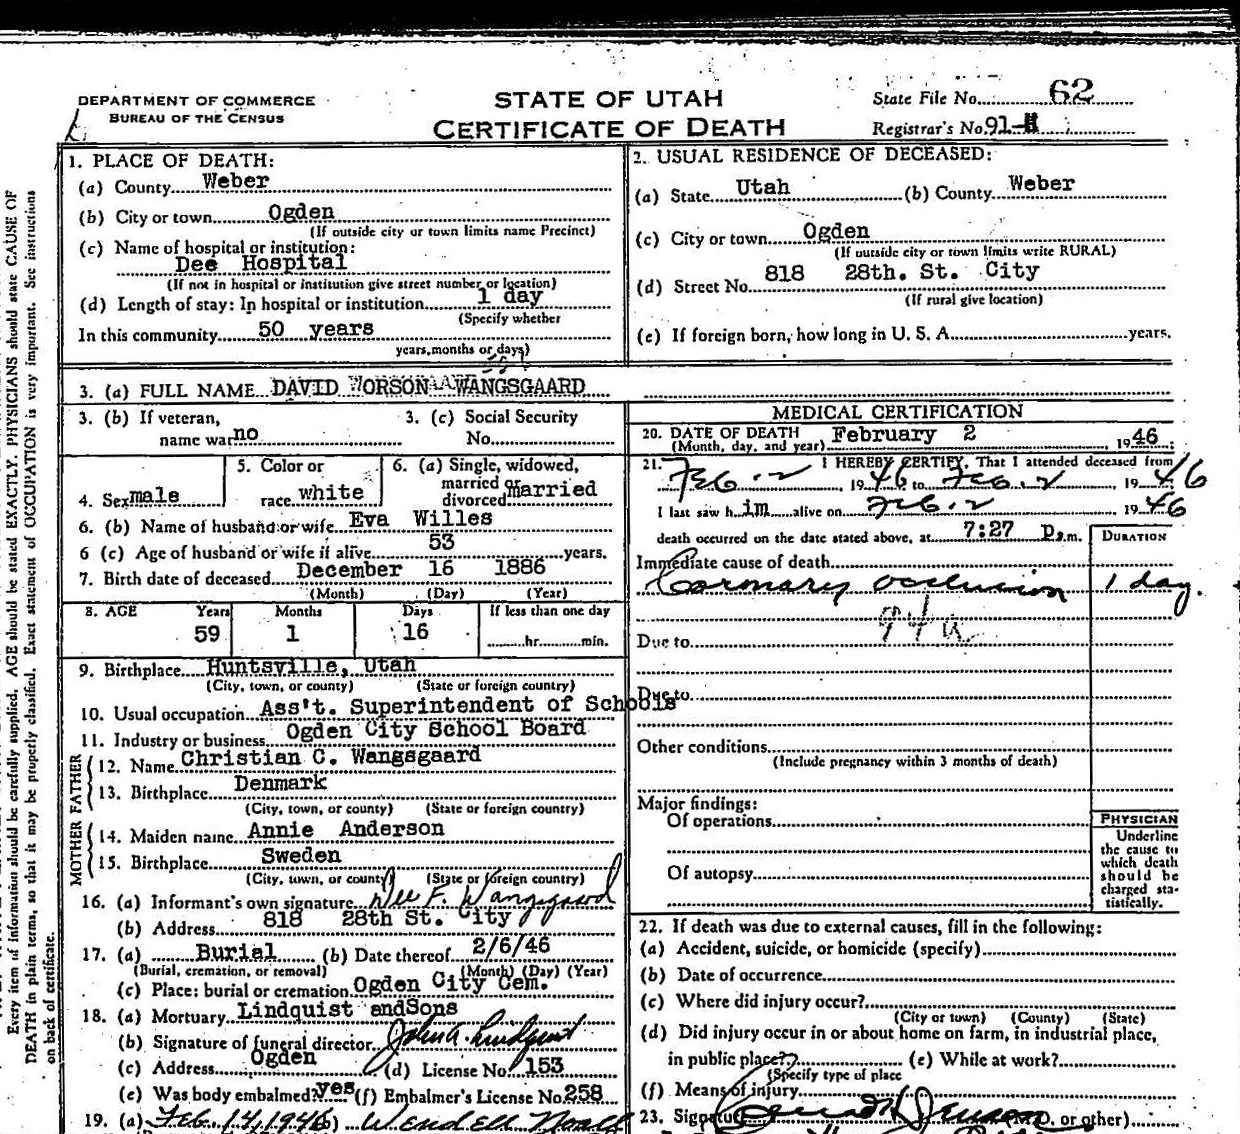 DEPARTMENT OF COMMERCE
BUREAU OF THE CENSUS
STATE OF UTAH
CERTIFICATE OF DEATH
State File No. 62
Registrar's No. 91-
1. PLACE OF DEATH:
(a) County Weber
(b) City or town Ogden
(If outside city or town limits name Precinct)
(c) Name of hospital or institution:
Dee Hospital
(If not in hospital or institution give street number or location)
(d) Length of stay: In hospital or institution 1 day
(Specify whether
In this community 50 years
years, months or days)
2. USUAL RESIDENCE OF DECEASED:
(a) State Utah (b) County Weber
(c) City or town Ogden
(If outside city or town limits write RURAL)
(d) Street No. 818 28th. St. City
(If rural give location)
(e) If foreign born, how long in U. S. A. years.
3. (a) FULL NAME DAVID ORSON WANGSGAARD
3. (b) If veteran, name war no
3. (c) Social Security No.
4. Sex male
5. Color or race white
6. (a) Single, widowed, married or divorced married
6. (b) Name of husband or wife Eva Willes
6 (c) Age of husband or wife if alive 53 years.
7. Birth date of deceased December 16 1886
(Month) (Day) (Year)
8. AGE Years Months Days If less than one day
59 1 16 hr. min.
9. Birthplace Huntsville, Utah
(City, town, or county) (State or foreign country)
10. Usual occupation Ass't. Superintendent of Schools
11. Industry or business Ogden City School Board
FATHER
12. Name Christian C. Wangsgaard
13. Birthplace Denmark
(City, town, or county) (State or foreign country)
MOTHER
14. Maiden name Annie Anderson
15. Birthplace Sweden
(City, town, or county) (State or foreign country)
16. (a) Informant's own signature Dee F. Wangsgaard
(b) Address 818 28th St. City
17. (a) Burial (b) Date thereof 2/6/46
(Burial, cremation, or removal) (Month) (Day) (Year)
(c) Place: burial or cremation Ogden City Cem.
18. (a) Mortuary Lindquist andSons
(b) Signature of funeral director John A. Lindquist
(c) Address Ogden (d) License No. 153
(e) Was body embalmed? yes (f) Embalmer's License No. 258
19. (a) Feb. 14, 1946 (b) Wendell
MEDICAL CERTIFICATION
20. DATE OF DEATH February 2 1946
(Month, day, and year)
21. I HEREBY CERTIFY, That I attended deceased from
Feb. 2, 1946 to Feb. 2 1946
I last saw h im alive on Feb. 2 1946
death occurred on the date stated above, at 7:27 P.m.
DURATION
Immediate cause of death
Coronary occlusion 1 day.
94a
Due to
Due to
Other conditions
(Include pregnancy within 3 months of death)
Major findings:
Of operations
Of autopsy
PHYSICIAN
Underline
the cause to
which death
should be
charged sta-
tistically.
22. If death was due to external causes, fill in the following:
(a) Accident, suicide, or homicide (specify)
(b) Date of occurrence
(c) Where did injury occur?
(City or town) (County) (State)
(d) Did injury occur in or about home on farm, in industrial place,
in public place? (e) While at work?
(Specify type of place
(f) Means of injury
23. Signature (M.D. or other)
Every item of information should be carefully supplied. AGE should be stated EXACTLY. PHYSICIANS should state CAUSE OF
DEATH in plain terms, so that it may be properly classified. Exact statement of OCCUPATION is very important. See instructions
on back of certificate.